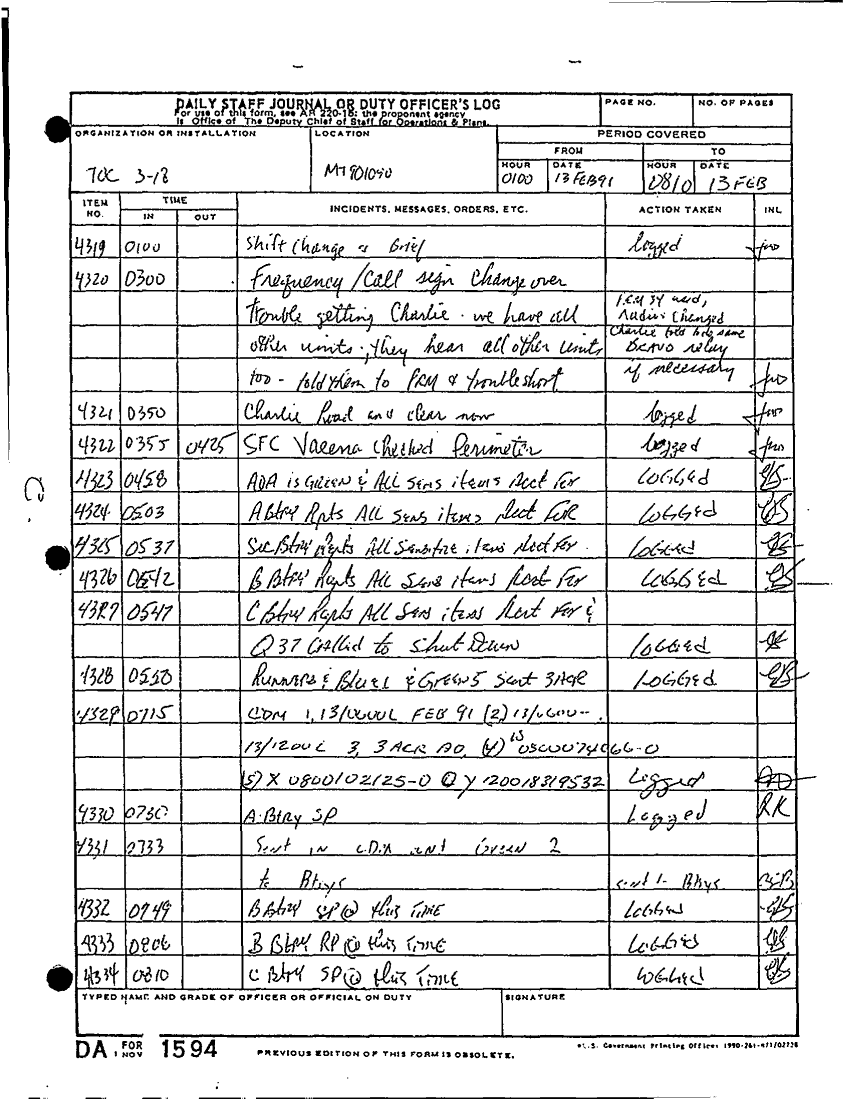 DAILY STAFF JOURNAL OR DUTY OFFICER'S LOG
For use of this form, see AR 220-15; the proponent agency
is Office of The Deputy Chief of Staff for Operations & Plans.
PAGE NO.
NO. OF PAGES
ORGANIZATION OR INSTALLATION
LOCATION
PERIOD COVERED
FROM
TO
HOUR DATE HOUR DATE
TOC 3-18
0100 13 FEB 91 0810 13 FEB
ITEM NO.
TIME
IN OUT
INCIDENTS, MESSAGES, ORDERS, ETC.
ACTION TAKEN
INL
4319 0100 Shift Change & Brief logged
4320 0300 Frequency/Call sign Changeover
trouble getting Charlie - we have all
other units, they hear all other units
too - told them to & troubleshoot
Charlie told
BRAVO relay
if necessary
4321 0350 Charlie loud and clear now logged
4322 0355 0425 SFC checked Perimeter logged
4323 0458 ADA is GREEN & All sens items Acct For LOGGED
4324 0503 A Btry Rpts All Sens items Acct FOR LOGGED
4325 0537 Svc Btry Rpts All Sensitive items Acct For LOGGED
4326 0542 B Btry Rapts All Sens items Acct For LOGGED
4327 0547 C Btry Rapts All Sens items Acct For &
Q37 Called to Shut Down LOGGED
4328 0550 Runners & Blue 1 & GREEN 5 Sent 3ACR LOGGED
4329 0715 CDM 1, 13/0000L FEB 91 (2) 13/0600-
13/1200L 3, 3 ACR AO, (4)
(5) X 0800/02/25-0 Q Y 120018319532 Logged
4330 0730 A Btry SP Logged RK
4331 0733 Sent in CDM and Green 2
to Btrys sent to Btrys
4332 0749 B Btry SP @ this TIME LOGGED
4333 0806 B Btry RP @ this TIME LOGGED
4334 0810 C Btry SP @ this TIME LOGGED
TYPED NAME AND GRADE OF OFFICER OR OFFICIAL ON DUTY
SIGNATURE
DA FOR 1 NOV 1594
PREVIOUS EDITION OF THIS FORM IS OBSOLETE.
U.S. Government Printing Office: 1990-261-871/02728